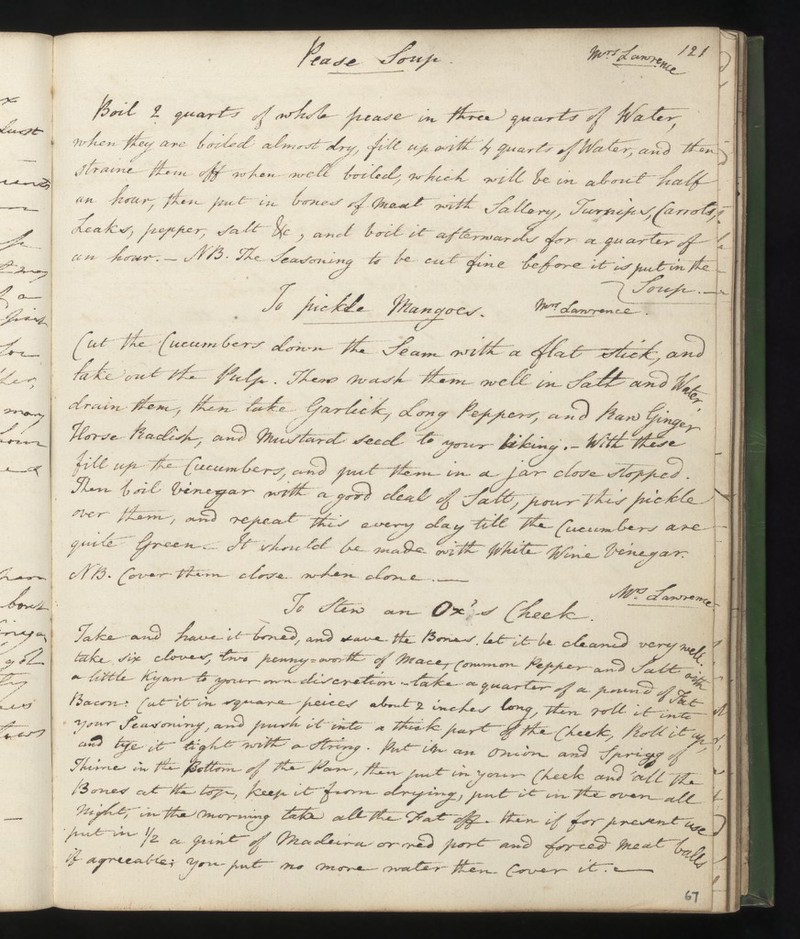 Pease Soup. Mrs Lawrence 121
Boil 2 quarts of whole pease in three quarts of Water,
when they are boiled almost dry, fill up with 4 quarts of Water, and then
straine them off when well boiled, which will be in about half
an hour, then put in bones of meat with Sallary, Turnips, Carrots,
Leaks, pepper, salt &c, and boil it afterwards for a quarter of
an hour. — NB. The Seasoning to be cut fine before it is put in the
Soup. —
To pickle Mangoes. Mrs Lawrence.
Cut the Cucumbers down the Seam with a flat stick, and
take out the Pulp. Then wash them well in Salt and Water
drain them, then take Garlick, Long Peppers, and Raw Ginger
Horse Radish, and Mustard seed to your liking. — With these
fill up the Cucumbers, and put them in a jar close stopped.
Then boil Vinegar with a good deal of Salt, pour this pickle
over them, and repeat this every day till the Cucumbers are
quite Green. — It should be made with White Wine Vinegar.
NB. Cover them close when done. —
To Stew an Ox's Cheek. Mrs Lawrence
Take and have it boned, and save the Bones. let it be cleaned very well.
take six cloves, two penny=worth of Mace, Common Pepper and Salt with
a little Kyan to your own discretion - take a quarter of a pound of Fat
Bacon: Cut it in square peices about 2 inches long, then roll it into
your Seasoning, and push it into a thick part of the Cheek, Roll it up,
and tye it tight with a string. Put in an onion and Sprigg of
Thime in the Bottom of the Pan, then put in your Cheek and all the
Bones at the top, keep it from drying, put it in the oven all
Night, in the morning take all the Fat off - then if for present use
put in 1/2 a pint of Madeira or red port and forced meat balls
if agreeable; you put no more water then Cover it. —
67